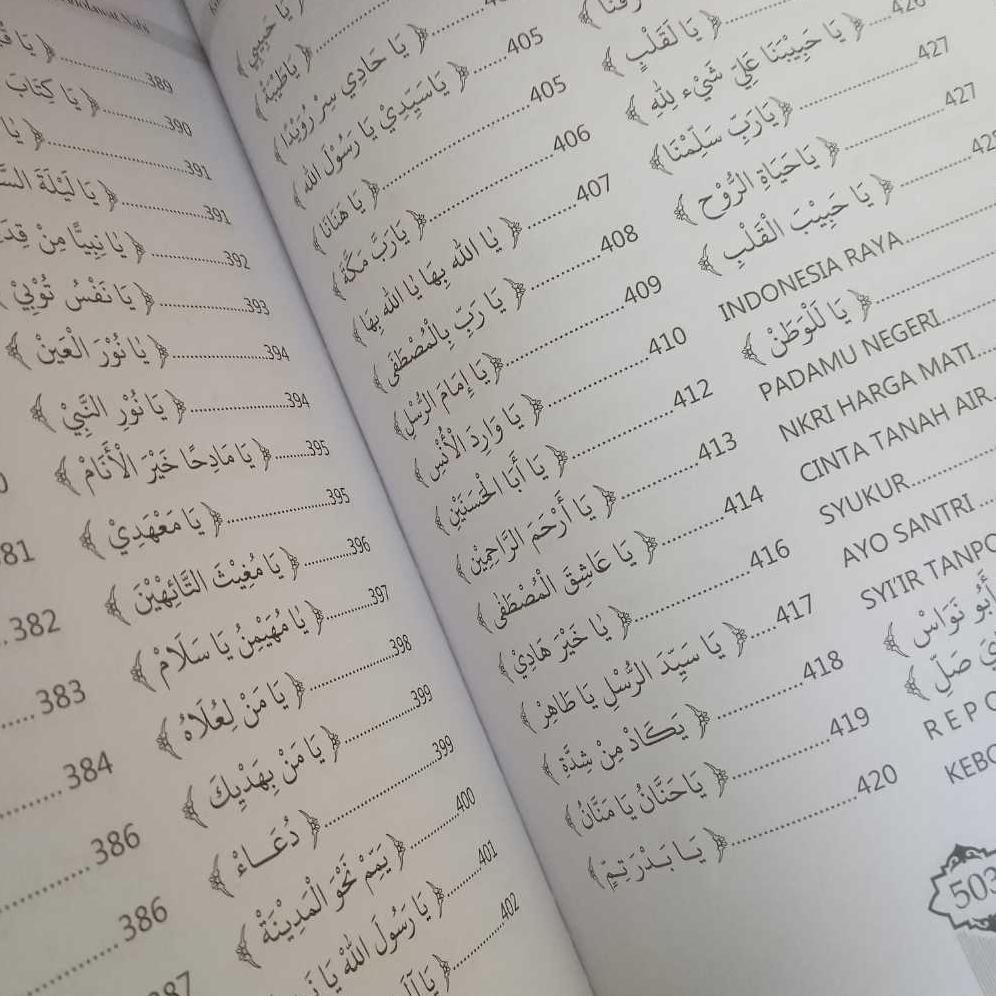 381
382
383
384
386
386
387
﴿ يَا قَ ........389
﴿ يَا كِتَابَ ........390
﴿ يَا ........391
﴿ يَا لَيْلَةَ ........391
﴿ يَا نَبِيًّا مِنْ ........392
﴿ يَا نَفْسُ تُوْبِيْ ........393
﴿ يَا نُوْرَ الْعَيْنْ ﴾ ........394
﴿ يَا نُوْرِ النَّبِيْ ﴾ ........394
﴿ يَا مَادِحًا خَيْرَ الْأَنَامْ ﴾ ........395
﴿ يَا مَعْهَدِيْ ﴾ ........395
﴿ يَا مُغِيْثَ التَّائِهِيْنَ ﴾ ........396
﴿ يَا مُهَيْمِنُ يَا سَلَامْ ﴾ ........397
﴿ يَا مَنْ لِعُلَاهُ ﴾ ........398
﴿ يَا مَنْ بِهَدْيِكَ ﴾ ........399
﴿ دُعَـــاءْ ﴾ ........399
﴿ يَمِّمْ نَحْوَ الْمَدِيْنَةْ ﴾ ........400
﴿ يَا رَسُولَ اللّٰهْ يَا ........401
﴿ يَا آلَ ........402
﴿ يَا حَبِيْبِيْ ﴾
﴿ يَاطَيْبَةْ ﴾
﴿ يَا حَادِي سِرْ رُوَيْدًا ﴾
﴿ يَاسَيِّدِيْ يَا رَسُوْلَ الله ﴾ ........405
﴿ يَا هَنَانَا ﴾ ........405
﴿ يَارَبَّ مَكَّةَ ﴾ ........406
﴿ يَا الله بِهَا يَا الله بِهَا ﴾ ........407
﴿ يَا رَبِّ بِالْمُصْطَفَى ﴾ ........408
﴿ يَا إِمَامَ الرُّسْلِ ﴾ ........409
﴿ يَا وَارِدَ الْأُنْسْ ﴾ ........410
﴿ يَا أَبَا الْحَسَنَيْنِ ﴾ ........412
﴿ يَا أَرْحَمَ الرَّاحِمِيْن ﴾ ........413
﴿ يَا عَاشِقَ الْمُصْطَفٰى ﴾ ........414
﴿ يَا خَيْرَ هَادِيْ ﴾ ........416
﴿ يَا سَيِّدَ الرُّسْلِ يَا طَاهِرْ ﴾ ........417
﴿ يَكَادْ مِنْ شِدَّةِ ﴾ ........418
﴿ يَاحَنَّانُ يَا مَنَّانُ ﴾ ........419
﴿ يَـا بَـدْرَتِمٍّ ﴾ ........420
﴿ يَا لَقَلْبٍ ﴾
﴿ يَا حَبِيْبَنَا عَلِيْ شَيْء لِلّٰهِ ﴾ ....426
﴿ يَارَبِّ سَلِّمْنَا ﴾ ........427
﴿ يَاحَيَاةِ الرُّوْحْ ﴾ ........427
﴿ يَا حَبِيْبَ الْقَلْبِ ﴾ ........
INDONESIA RAYA........
﴿ يَا لَلْوَطَنْ ﴾ ........
PADAMU NEGERI........
NKRI HARGA MATI....
CINTA TANAH AIR
SYUKUR........
AYO SANTRI....
SYI'IR TANPO
أَبُو نَوَاسْ ﴾
صَلِّ ﴾
503